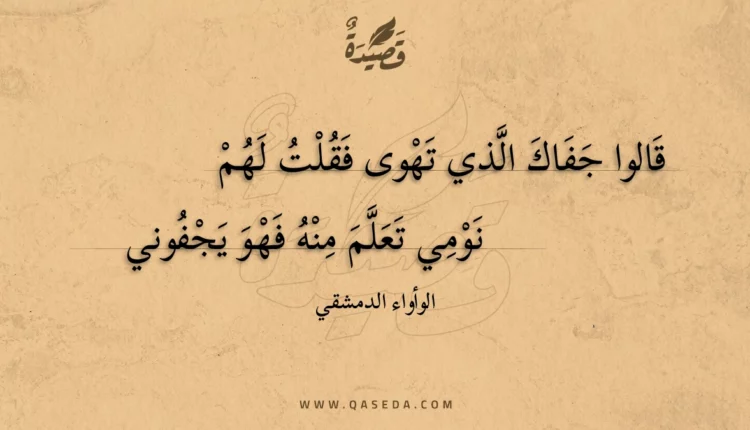 قَصِيْدَةٌ
قَالوا جَفَاكَ الَّذي تَهْوى فَقُلْتُ لَهُمْ
نَوْمِي تَعَلَّمَ مِنْهُ فَهْوَ يَجْفُوني
الوأواء الدمشقي
WWW.QASEDA.COM